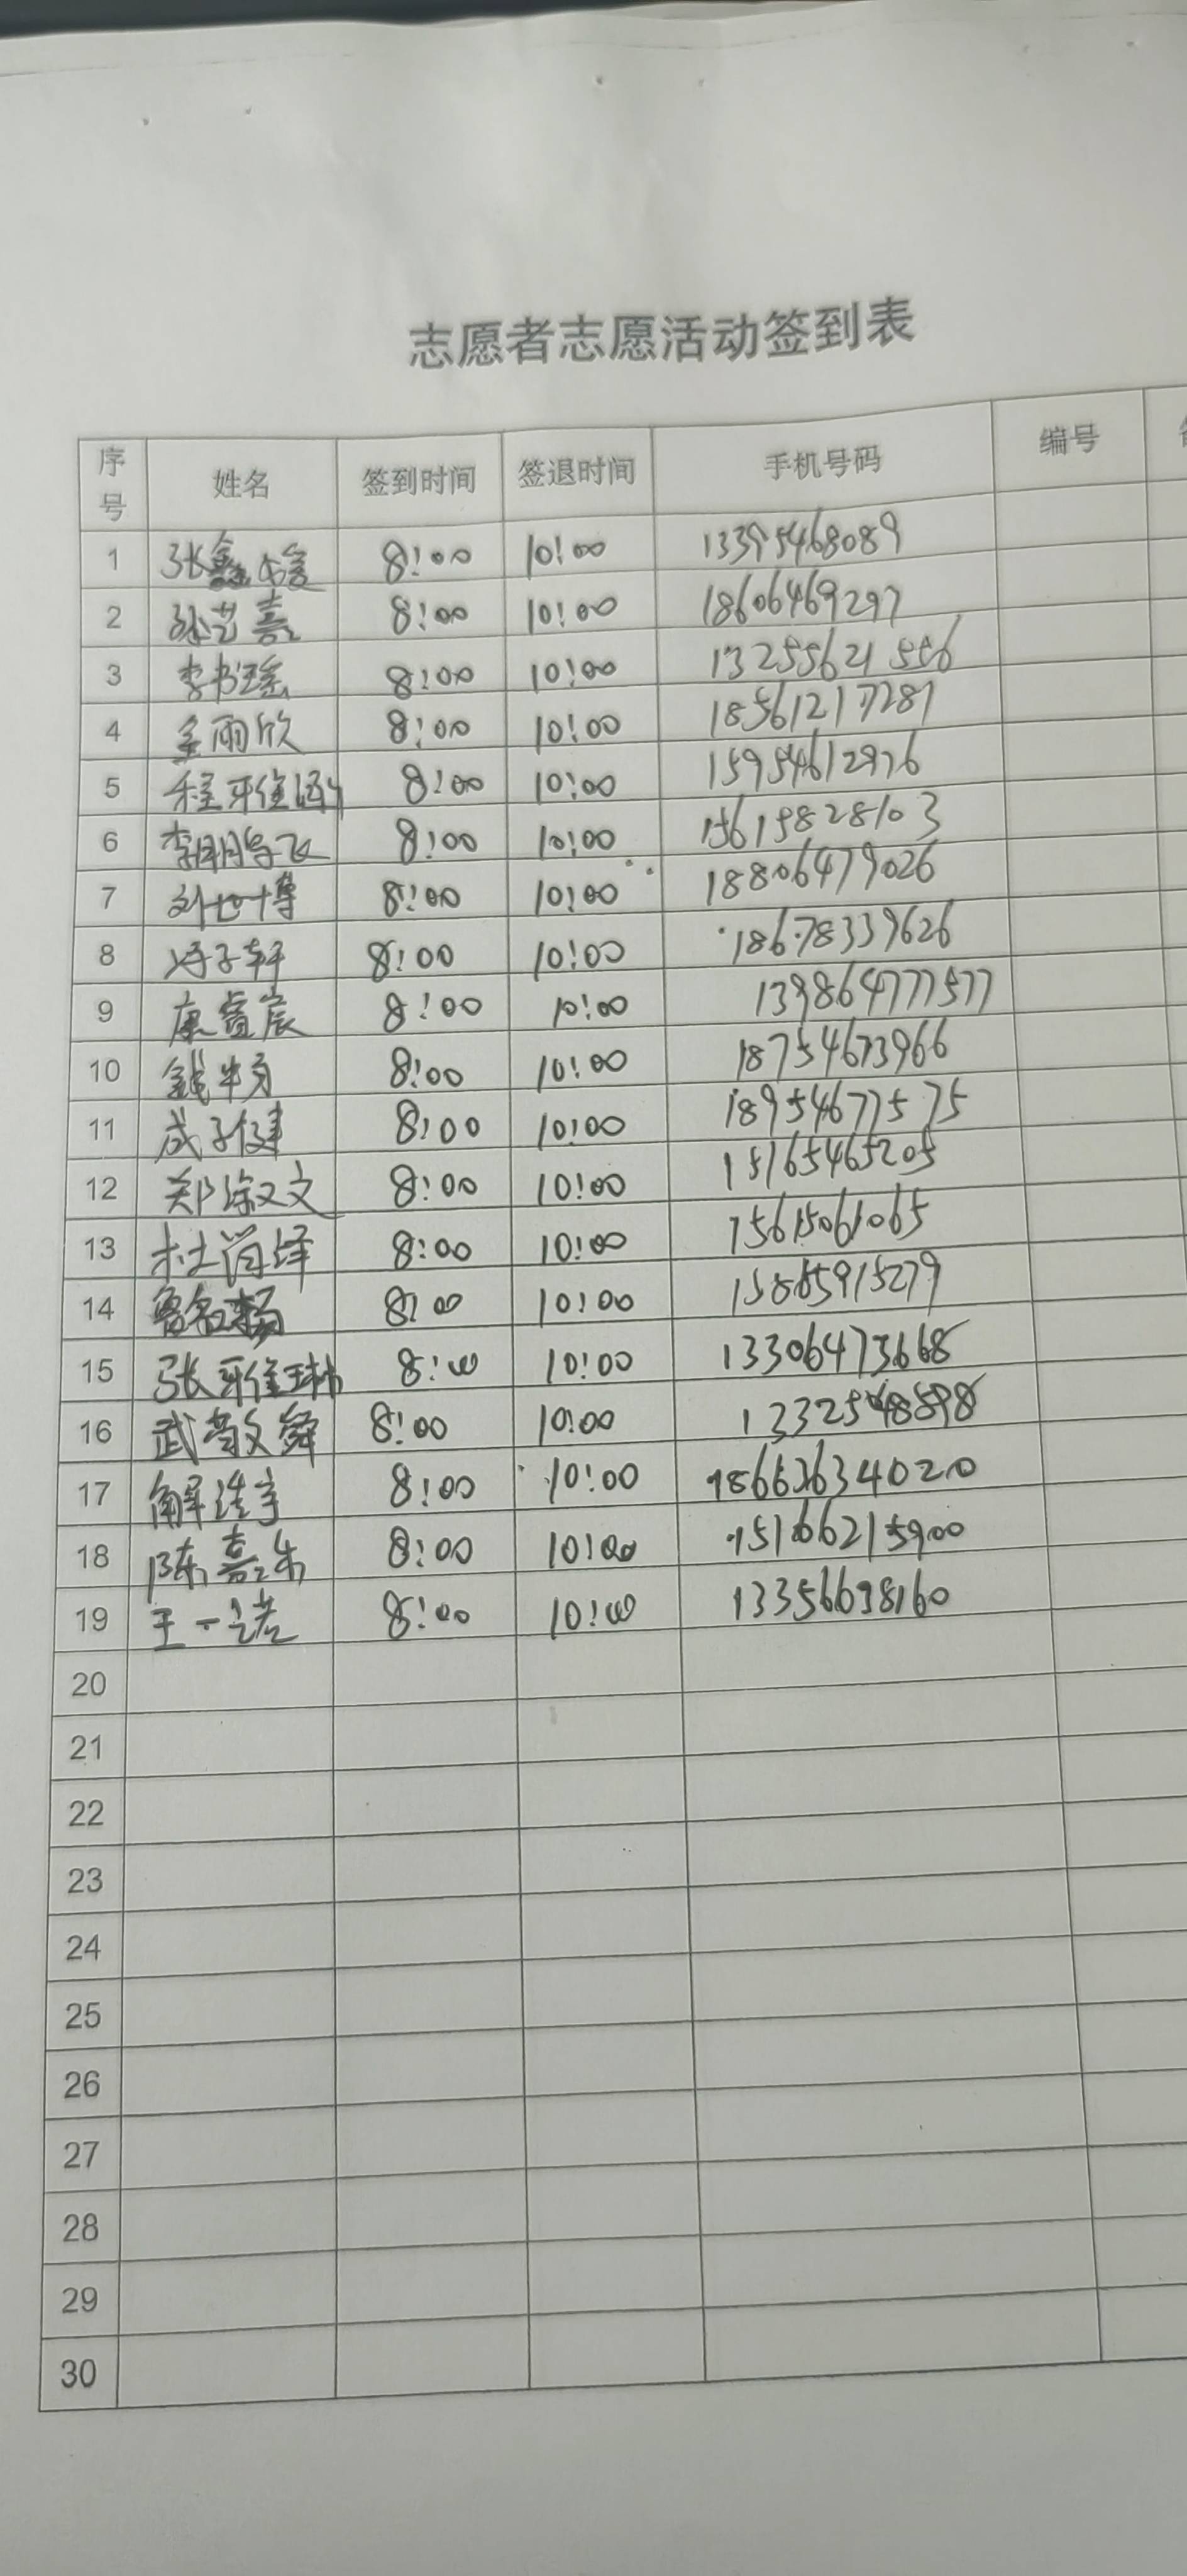 志愿者志愿活动签到表
序号 姓名 签到时间 签退时间 手机号码 编号
1 张鑫 8:00 10:00 13395468089
2 孙艺嘉 8:00 10:00 18606469297
3 李书瑶 8:00 10:00 13255621556
4 金雨欣 8:00 10:00 18561217287
5 程雅涵 8:00 10:00 15954612976
6 李鹏飞 8:00 10:00 15615828103
7 刘世博 8:00 10:00 18806479026
8 子轩 8:00 10:00 18678339626
9 康鑫宸 8:00 10:00 139864777577
10 8:00 10:00 18754673966
11 成子健 8:00 10:00 18954677575
12 郑淑文 8:00 10:00 15165465205
13 杜尚泽 8:00 10:00 15615061065
14 8:00 10:00 15865915279
15 张雅琳 8:00 10:00 13306473668
16 武敬舜 8:00 10:00 1332548898
17 解浩宇 8:00 10:00 18663634020
18 陈嘉乐 8:00 10:00 151666215900
19 王一诺 8:00 10:00 13356698160
20
21
22
23
24
25
26
27
28
29
30